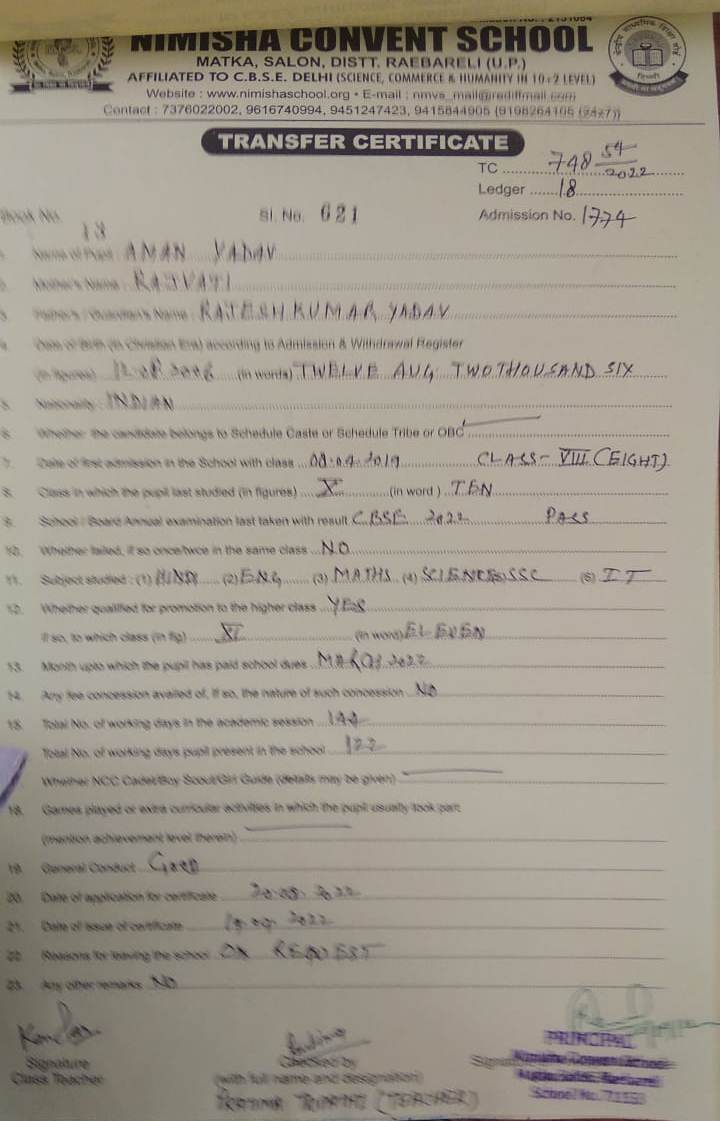 NIMISHA CONVENT SCHOOL
MATKA, SALON, DISTT. RAEBARELI (U.P.)
AFFILIATED TO C.B.S.E. DELHI (SCIENCE, COMMERCE & HUMANITY IN 10+2 LEVEL)
Website : www.nimishaschool.org • E-mail : nmvs_mail@rediffmail.com
Contact : 7376022002, 9616740994, 9451247423, 9415844905 (9198264105 (24x7))
TRANSFER CERTIFICATE
TC 748 54/2022
Ledger 18
Book No. 13 Sl. No. 621 Admission No. 1774
1. Name of Pupil : AMAN YADAV
2. Mother's Name : RAJVATI
3. Father's / Guardian's Name : RAJESH KUMAR YADAV
4. Date of Birth (in Christian Era) according to Admission & Withdrawal Register
(in figures) 12.08.2006 (in words) TWELVE AUG TWO THOUSAND SIX
5. Nationality : INDIAN
6. Whether the candidate belongs to Schedule Caste or Schedule Tribe or OBC
7. Date of first admission in the School with class 08.04.2019 CLASS - VIII (EIGHT)
8. Class in which the pupil last studied (in figures) X (in word) TEN
9. School / Board Annual examination last taken with result CBSE 2022 PASS
10. Whether failed, if so once/twice in the same class NO
11. Subject studied : (1) HINDI (2) ENG (3) MATHS (4) SCIENCE (5) SSC (6) IT
12. Whether qualified for promotion to the higher class YES
If so, to which class (in fig) XI (in word) ELEVEN
13. Month upto which the pupil has paid school dues MARCH 2022
14. Any fee concession availed of, if so, the nature of such concession NO
15. Total No. of working days in the academic session 144
Total No. of working days pupil present in the school 122
Whether NCC Cadet/Boy Scout/Girl Guide (details may be given)
18. Games played or extra curricular activities in which the pupil usually took part
(mention achievement level therein)
19. General Conduct GOOD
20. Date of application for certificate 2022
21. Date of issue of certificate 2022
22. Reasons for leaving the school ON REQUEST
23. Any other remarks NO
Signature
Class Teacher
Checked by
(with full name and designation)
PRATIMA TRIPATHI (TEACHER)
PRINCIPAL
Nimisha Convent School
School No. 71153